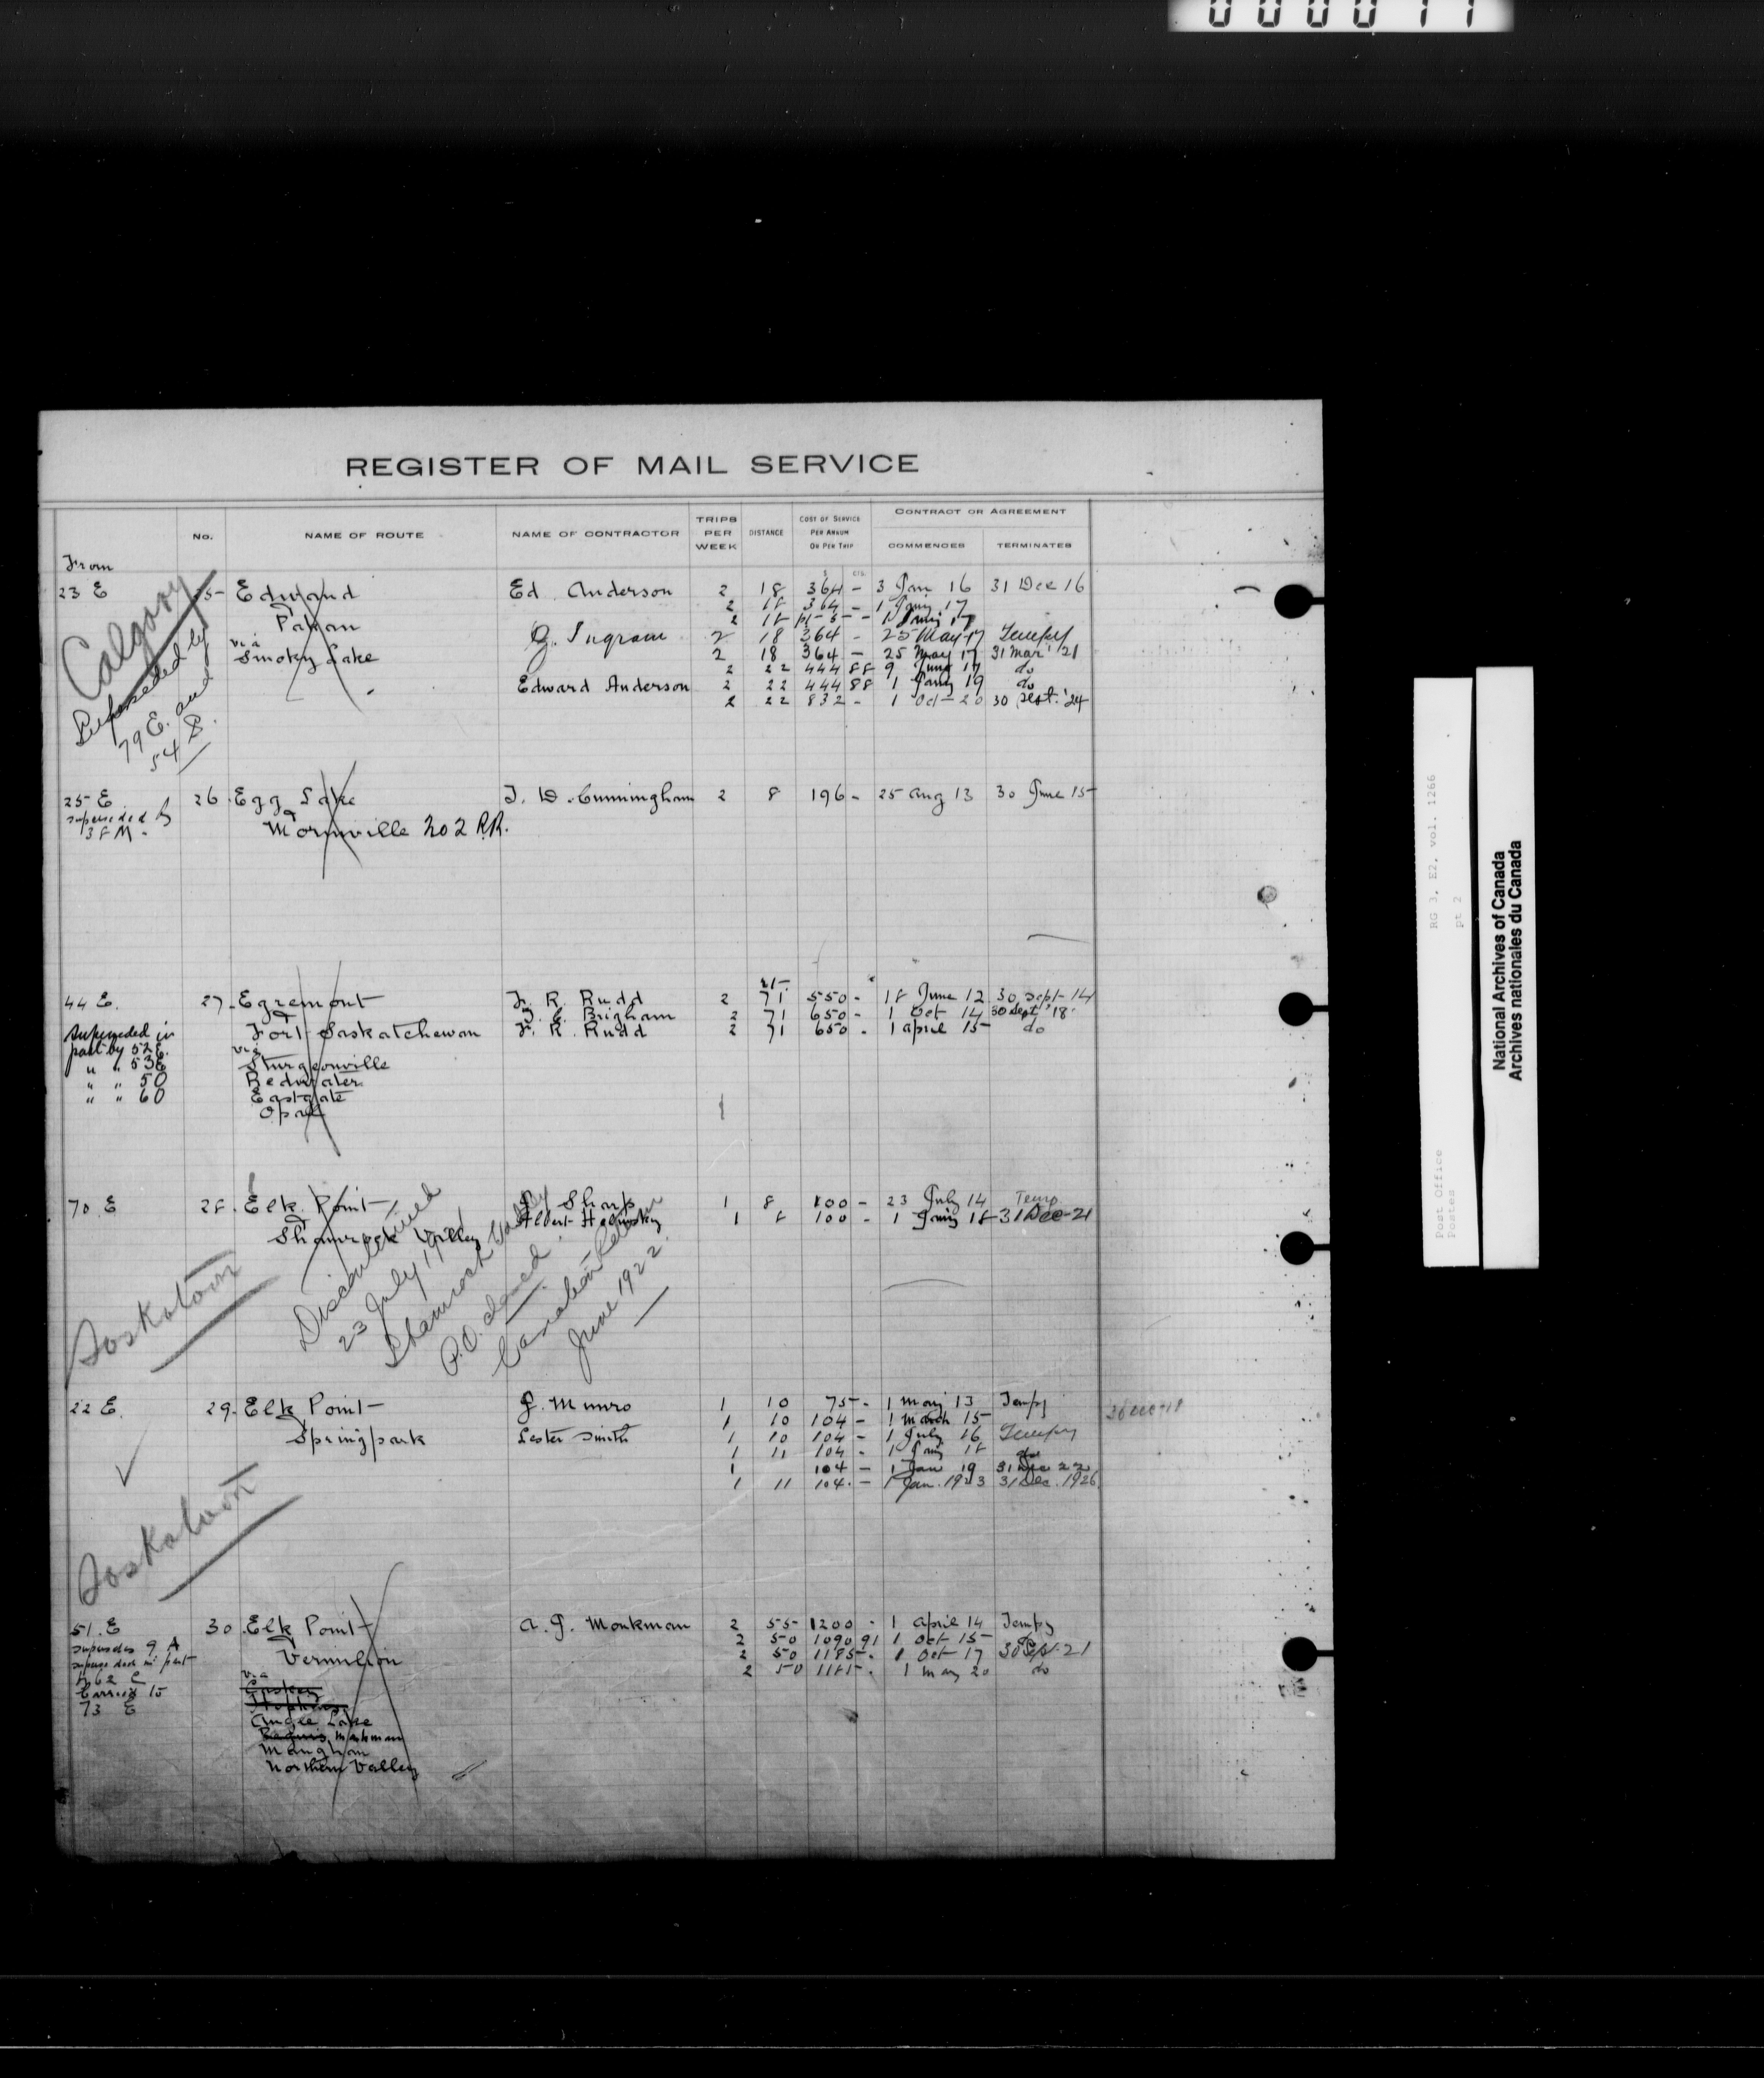 000011
REGISTER OF MAIL SERVICE
No. NAME OF ROUTE NAME OF CONTRACTOR TRIPS PER WEEK DISTANCE COST OF SERVICE PER ANNUM OR PER TRIP CONTRACT OR AGREEMENT COMMENCES TERMINATES
From
23 E 25 Edwand Ed. Anderson 2 18 364 - 3 Jan 16 31 Dec 16
2 18 364 - 1 Jany 17
& Pakan 2 18
G. Ingram 2 18 364 - 25 May 17 Tempy
via Smoky Lake 2 18 364 - 25 May 17 31 Mar '21
2 22 444 88 9 June 17 do
Edward Anderson 2 22 444 88 1 Jany 19 do
2 22 832 - 1 Oct - 20 30 Sept. '24
Calgary
Superseded by
79 E. and
54 B.
25 E 26. Egg Lake J. D. Cunningham 2 8 196 - 25 Aug 13 30 June 15
superseded by
38 M.
& Morinville 202 R.R.
44 E. 27. Egremont F. R. Rudd 2 71 550 - 18 June 12 30 Sept 14
& Brigham 2 71 650 - 1 Oct 14 30 Sept '18
Fort Saskatchewan F. R. Rudd 2 71 650 - 1 April 15 do
superseded in
part by 52 E.
" " 53 E
" " 50
" " 60
via
Sturgeonville
Redwater
Eastgate
Opal
70 E 28. Elk Point Sharp 1 8 100 - 23 July 14 Temp
Albert 1 8 100 - 1 Jany 18 31 Dec 21
& Shamrock Valley
Discontinued
23 July 19
Shamrock Valley
P.O. closed
June 1922
Saskatoon
22 E. 29. Elk Point J. Munro 1 10 75 - 1 May 13 Tempy
1 10 104 - 1 March 15
& Springpark Lester Smith 1 10 104 - 1 July 16 Tempy
1 11 104 - 1 Jany 18 do
1 104 - 1 Jan 19 31 Dec 22
1 11 104 - 1 Jan. 1923 31 Dec. 1926
Saskatoon
51 E 30. Elk Point A. J. Monkman 2 55 1200 - 1 April 14 Tempy
2 50 1090 91 1 Oct 15 do
& Vermilion 2 50 1185 - 1 Oct 17 30 Sept 21
2 50 1185 - 1 May 20 do
supersedes 9 A
superseded in part
by 62 E
73 E
via
Angle Lake
Monkman
Northern Valley
RG 3, E2, vol. 1266
pt 2
Post Office
Postes
National Archives of Canada
Archives nationales du Canada